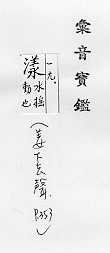 彙音寶鑑
一九.
漾 水搖動也
(姜下去聲. P.353)